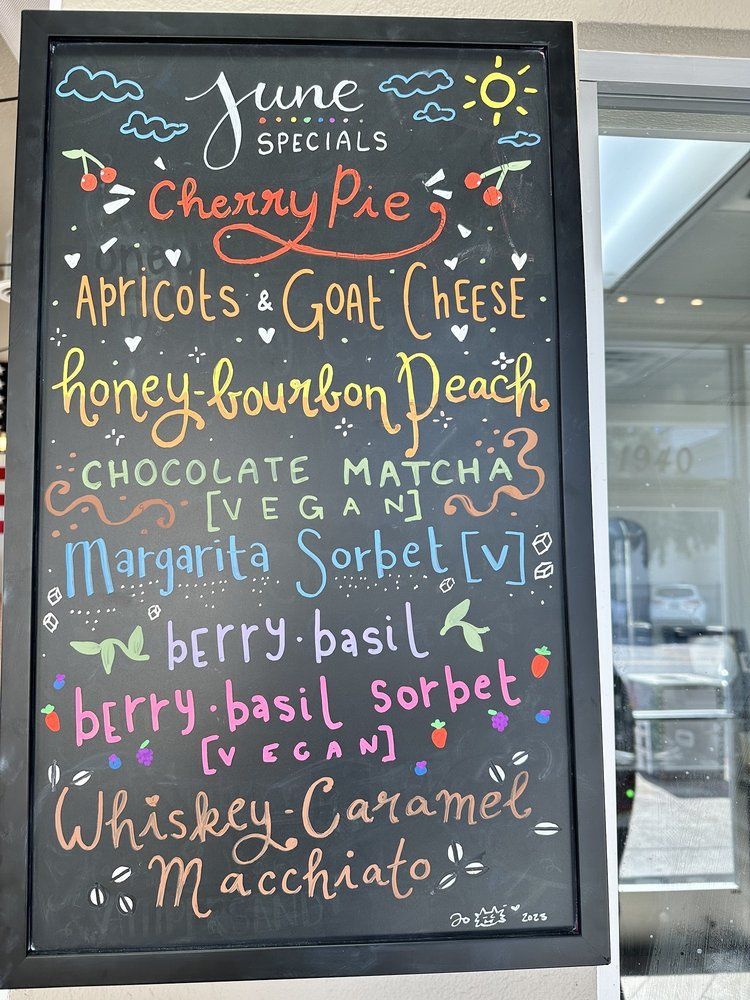 June
SPECIALS
Cherry Pie
Apricots & Goat Cheese
honey-bourbon Peach
CHOCOLATE MATCHA
[VEGAN]
Margarita Sorbet [V]
berry·basil
berry·basil sorbet
[VEGAN]
Whiskey-Caramel
Macchiato
Jo
2023
1940